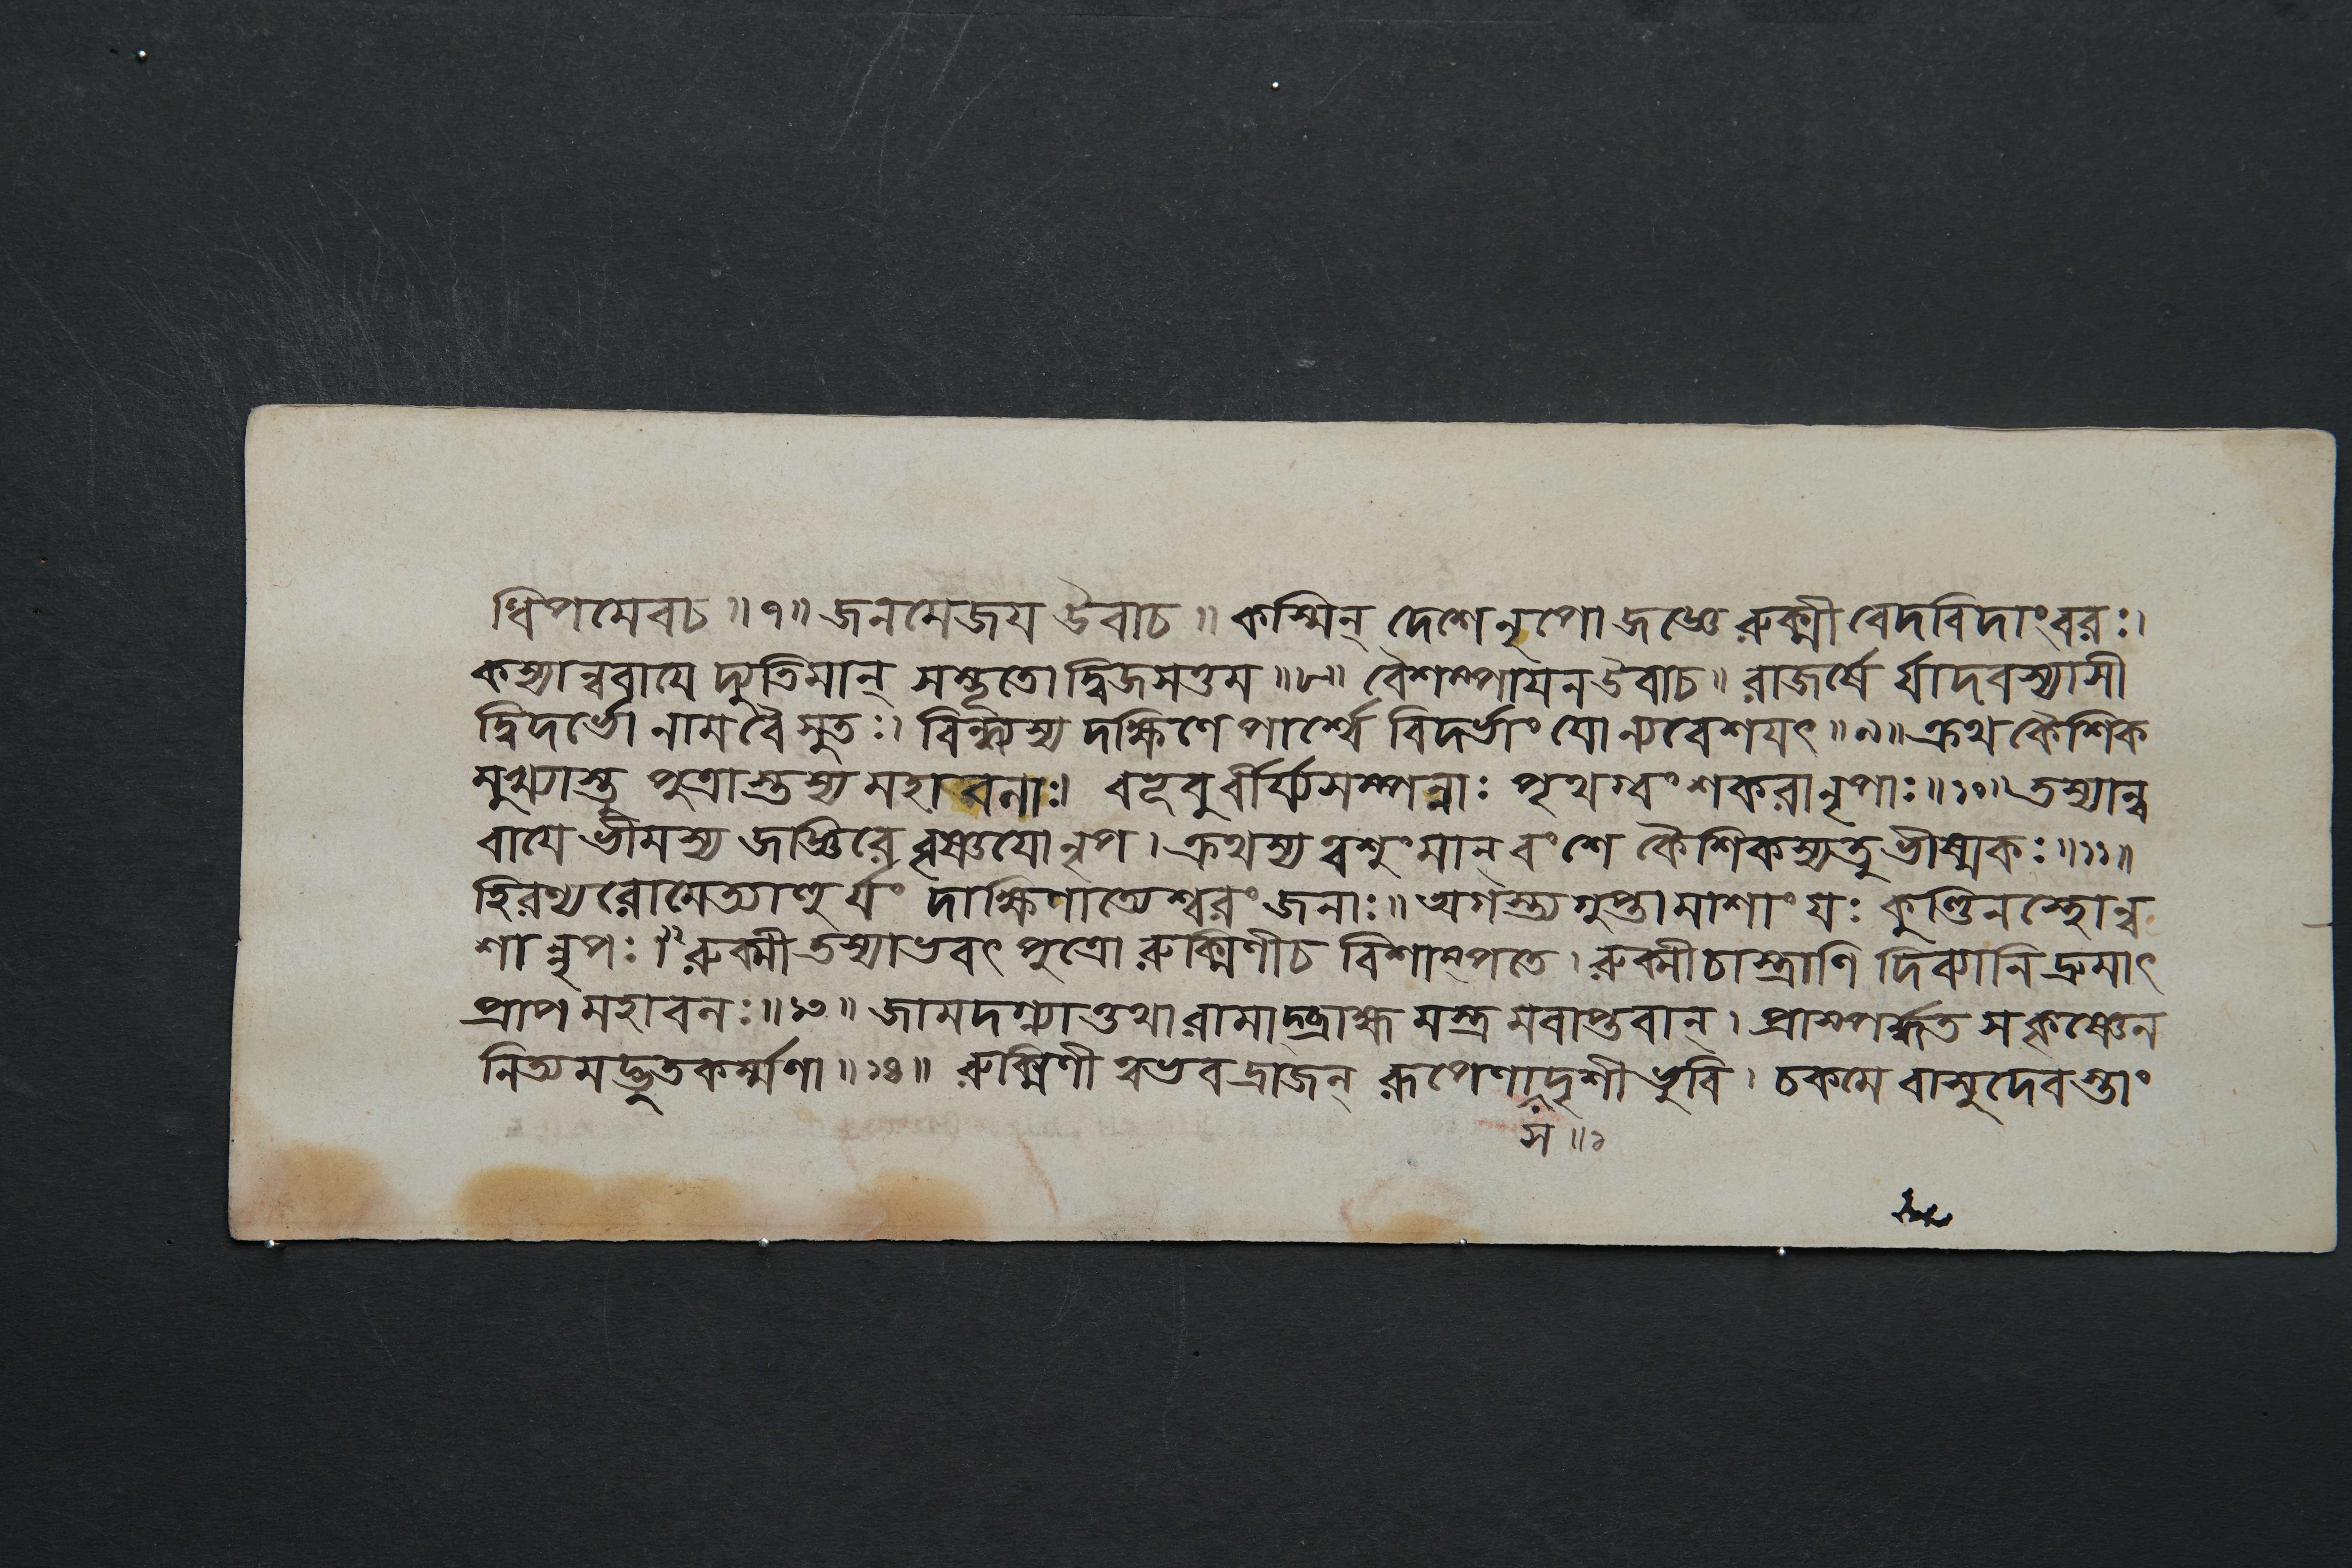 ধিপমেবচ ॥৭॥ জনমেজয উবাচ ॥ কস্মিন্ দেশে নৃপো জজ্ঞে রুক্মী বেদবিদাংবরঃ।
কস্যান্ববাযে দ্যুতিমান্ সম্ভূতো দ্বিজসত্তম ॥৮॥ বৈশম্পাযন উবাচ॥ রাজর্ষে র্যাদবস্যাসী
দ্বিদর্ভো নাম বৈ সুতঃ। বিন্ধ্যস্য দক্ষিণে পার্শ্বে বিদর্ভাং যোন্যবেশযৎ ॥৯॥ ক্রথ কৈশিক
মুখ্যাস্তু পুত্রাস্তস্য মহাবলাঃ। বভূবুর্বীর্য্যসম্পন্নাঃ পৃথগ্বংশকরানৃপাঃ॥১০॥ তস্যান্ব
বাযে ভীমস্য জজ্ঞিরে বৃষ্ণযোনৃপ। ক্রথস্য ত্বংশুমান্ বংশে কৈশিকস্যতু ভীষ্মকঃ॥১১॥
হিরণ্যরোমেত্যাহু র্যং দাক্ষিণাত্যেশ্বরং জনাঃ॥ অগস্ত্য গুপ্তামাশাং যঃ কুণ্ডিনস্থোন্ব
শান্নৃপঃ।১২ রুক্মী তস্যাভবৎ পুত্রো রুক্মিণীচ বিশাম্পতে। রুক্মী চাস্ত্রাণি দিব্যানি দ্রুমাৎ
প্রাপ মহাবলঃ॥১৩॥ জামদগ্ন্যাত্তথা রামাদ্ব্রাহ্ম মস্ত্র মবাপ্তবান্। প্রাস্পর্দ্ধত স কৃষ্ণেন
নিত্যমদ্ভুতকর্ম্মণা॥১৪॥ রুক্মিণী ত্বভবদ্রাজন্ রূপেণাদৃশী ভুবি। চকমে বাসুদেবস্তাং
স॥১